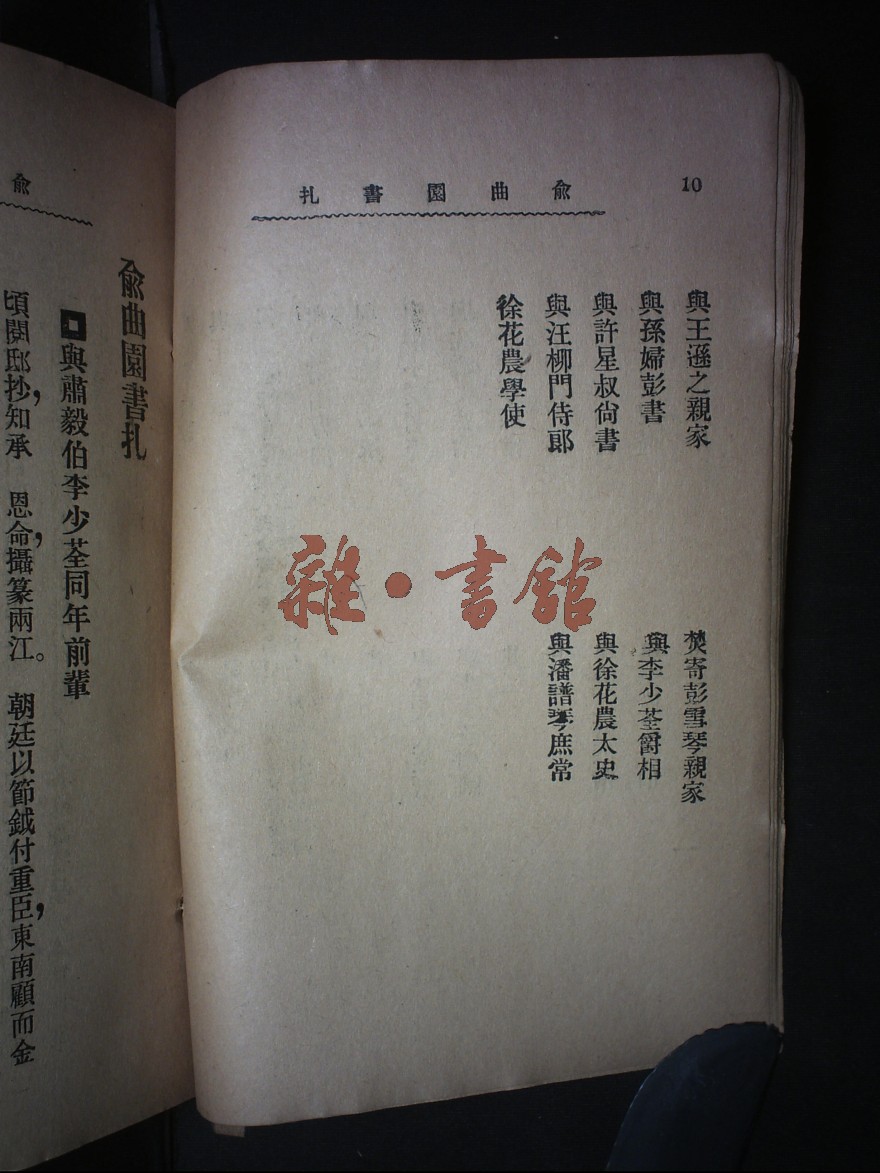 10
俞曲園書扎
與王遜之親家
與孫婦彭書
與許星叔尙書
與汪柳門侍郞
徐花農學使
焚寄彭雪琴親家
與李少荃爵相
與徐花農太史
與潘譜琴庶常
雜·書館
俞
俞曲園書扎
與肅毅伯李少荃同年前輩
頃閱邸抄,知承 恩命,攝篆兩江。 朝廷以節鉞付重臣,東南顧而金